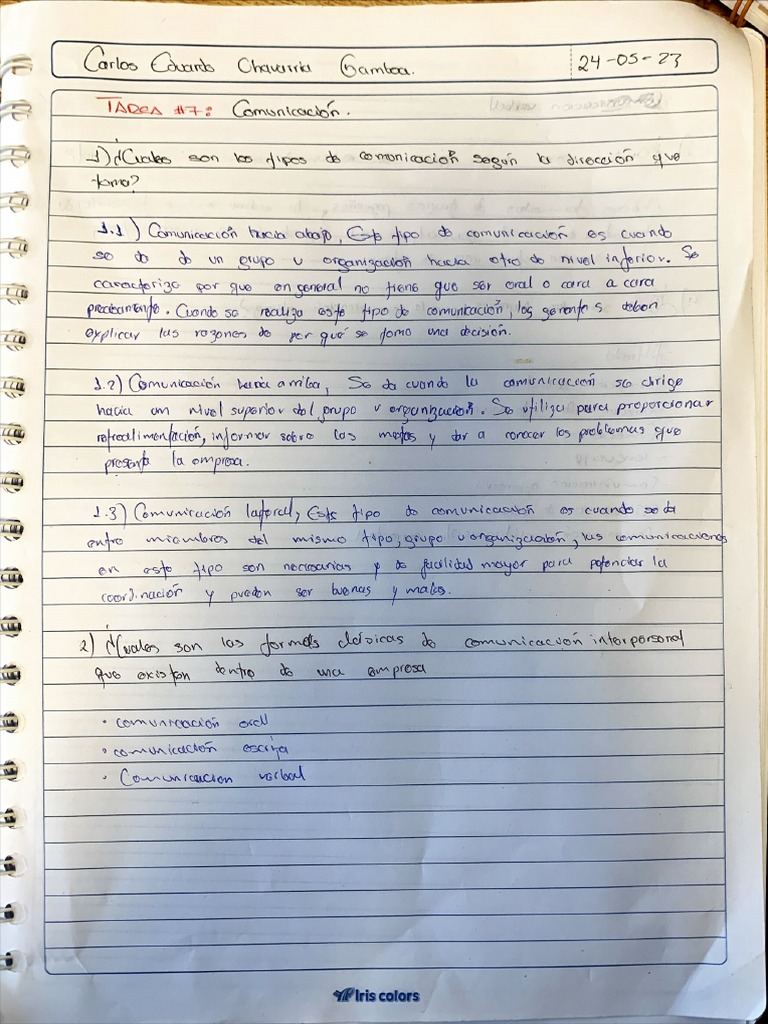 Carlos Eduardo Chavarria Gamboa.
24-05-23
TAREA #7: Comunicación.
1) ¿Cuales son los tipos de comunicación según la dirección que
toma?
1.1) Comunicación hacia abajo, Este tipo de comunicación es cuando
se da de un grupo u organización hacia otro de nivel inferior. Se
caracteriza por que en general no tiene que ser oral o cara a cara
precisamente. Cuando se realiza este tipo de comunicación, los gerentes deben
explicar las razones de por qué se toma una decisión.
1.2) Comunicación hacia arriba, Se da cuando la comunicación se dirige
hacia un nivel superior del grupo u organización. Se utiliza para proporcionar
retroalimentación, informar sobre las metas y dar a conocer los problemas que
presenta la empresa.
1.3) Comunicación lateral, Este tipo de comunicación es cuando se da
entre miembros del mismo tipo, grupo u organización, las comunicaciones
en este tipo son necesarias y de facilidad mayor para potenciar la
coordinación y pueden ser buenas y malas.
2) ¿Cuales son las formas clásicas de comunicación interpersonal
que existen dentro de una empresa
• comunicación oral
• comunicación escrita
• Comunicacion verbal
Iris colors